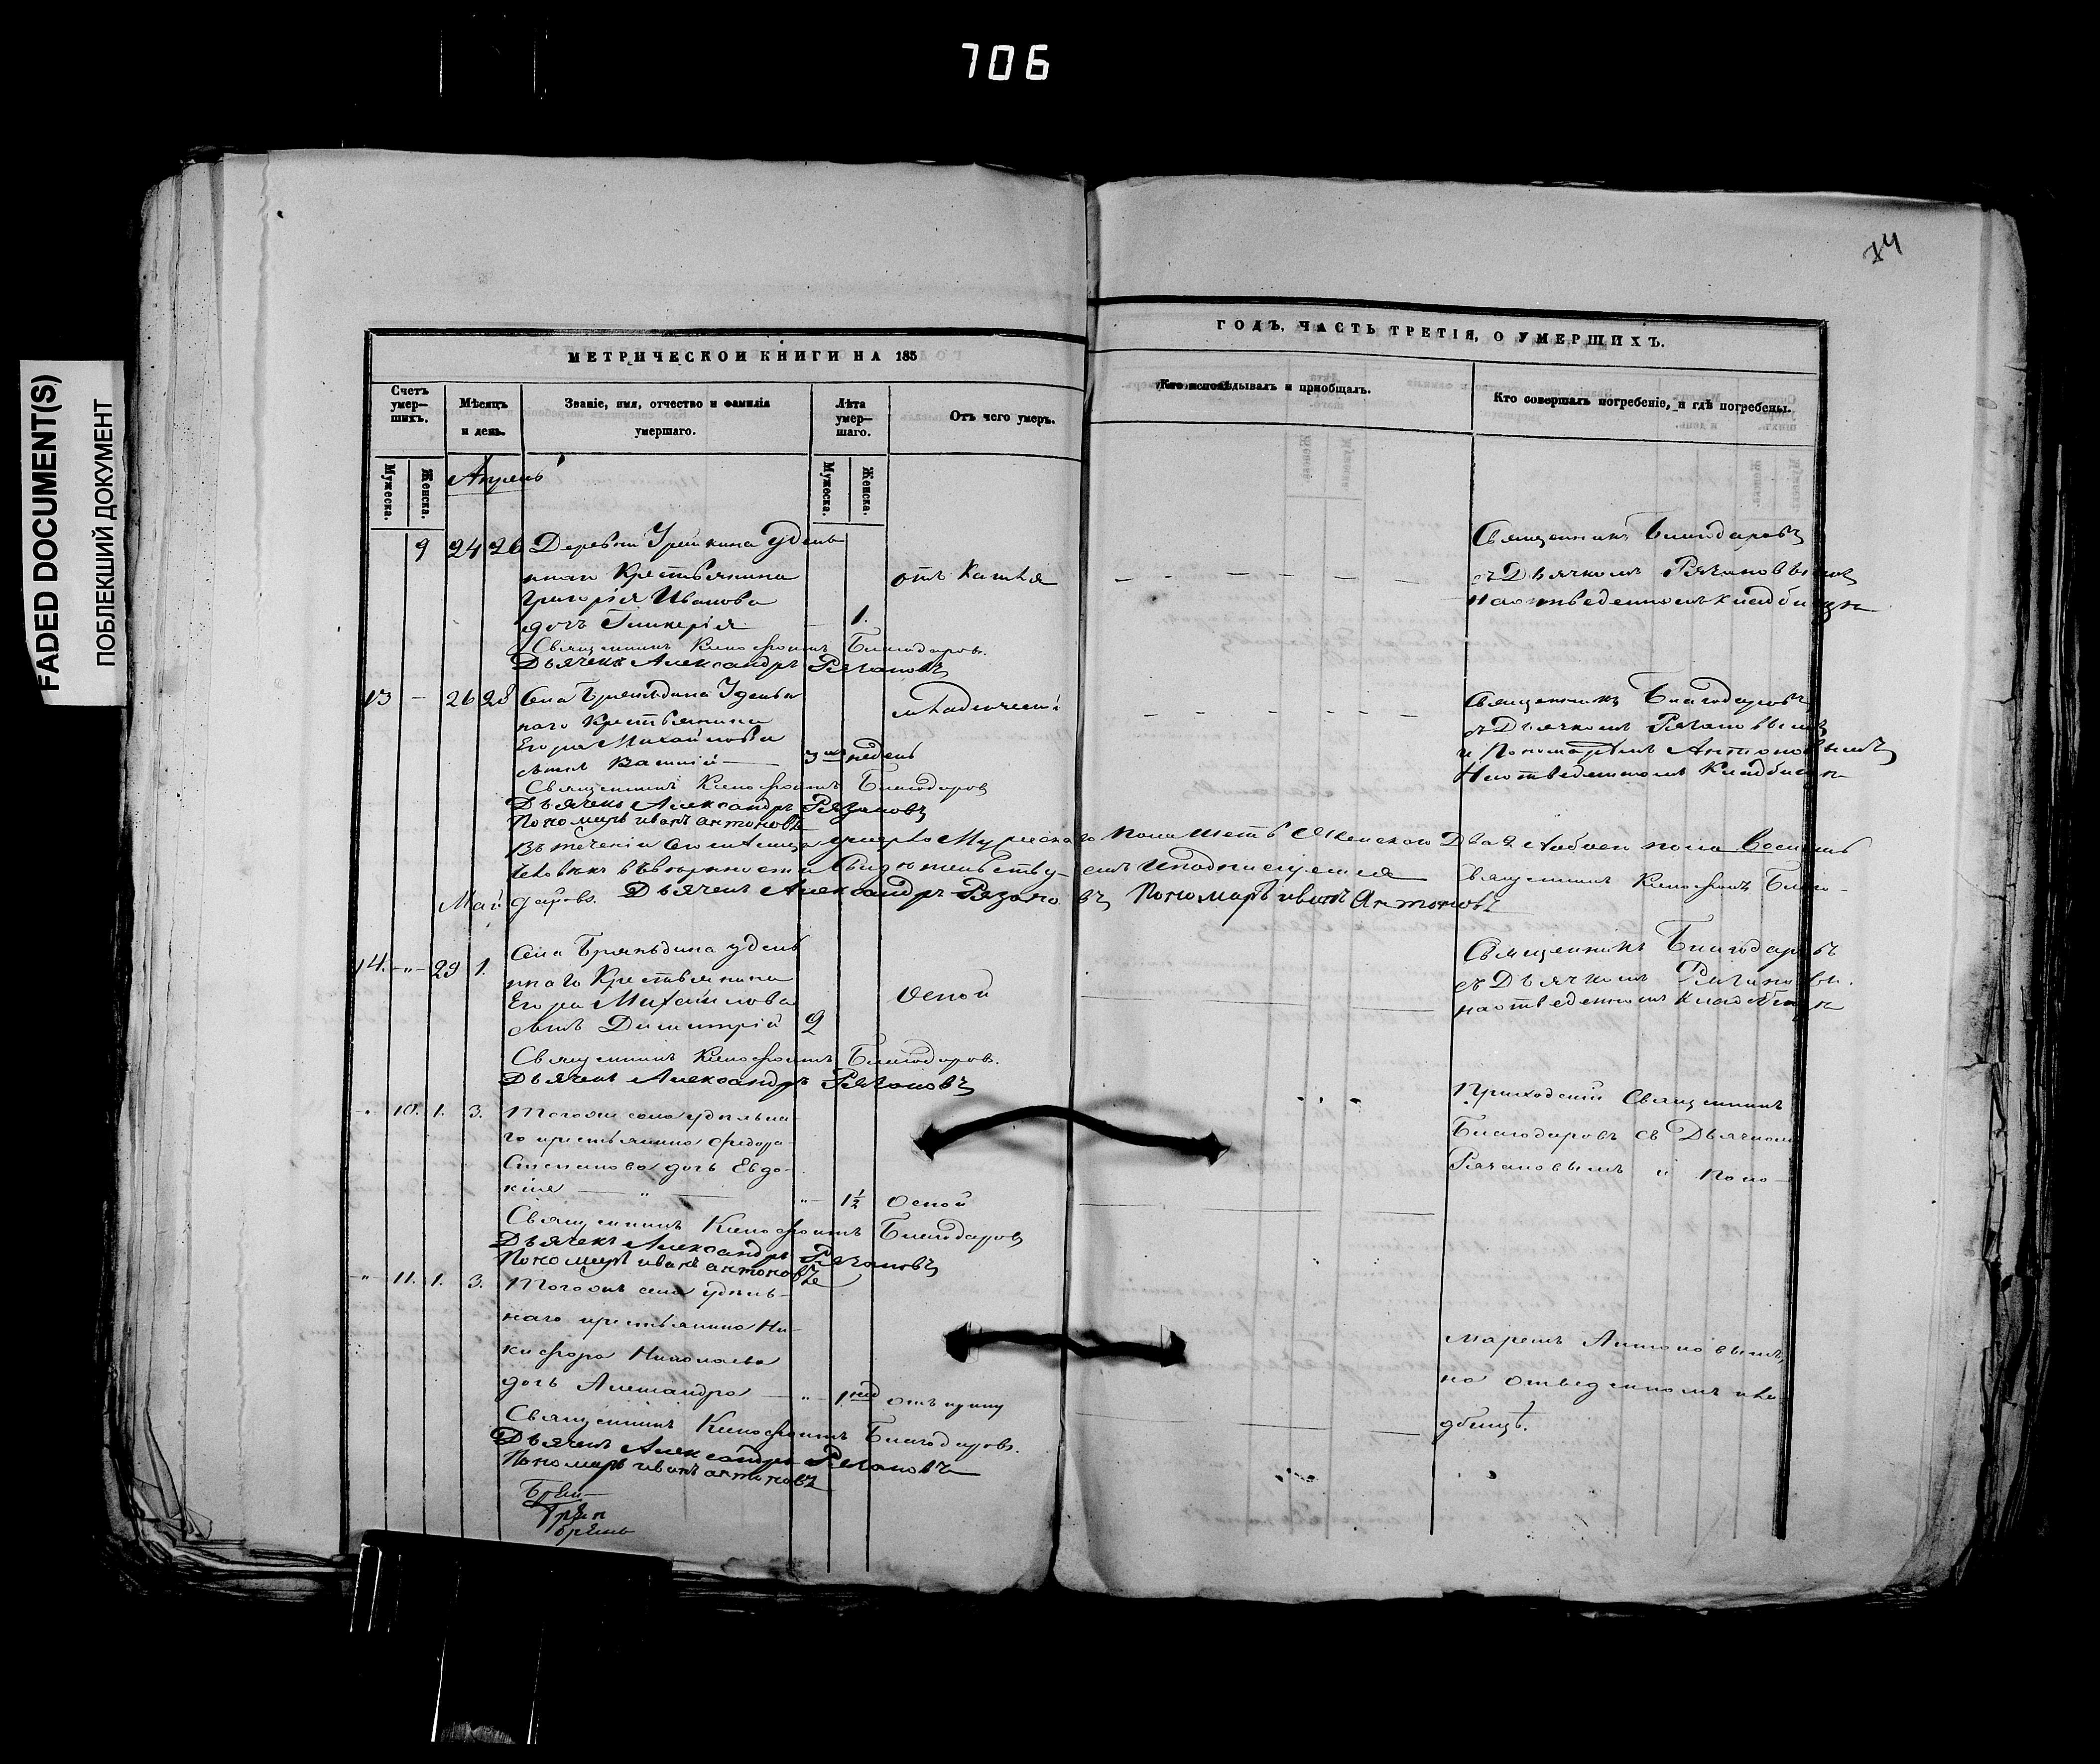 706
FADED DOCUMENT(S)
ПОБЛЕКШИЙ ДОКУМЕНТ
74
МЕТРИЧЕСКОИ КНИГИ НА 185
ГОДЪ, ЧАСТЬ ТРЕТІЯ, О УМЕРШИХЪ.
Счетъ умер—шихъ.
Мѣсяцъ и день.
Званіе, имя, отчество и фамилія умершаго.
Лѣта умер—шаго.
Отъ чего умеръ.
Кто исповѣдывалъ и приобщалъ.
Кто совершалъ погребеніе, и гдѣ погребены.
Мужеска. Женска.
Мужеска. Женска.
Апрель
9 24 26 Деревни удель
наго Крестьянина
Григорія Иванова
дочь Гликерія 1.
отъ Кашля
Священникъ Благодаровъ
съ Дьячкомъ Рязановымъ
на отведенномъ кладбище
Священникъ Ксенофонтъ Благодаровъ.
Дьячекъ Александръ Рязановъ
13 — 26 28 Села Удель
наго Крестьянина
Егора Михайлова
сынъ 3 недель
младенческ
Священникъ Благодаровъ
съ Дьячкомъ Рязановымъ
и Пономаремъ Антоновымъ
На отведенномъ Кладбище
Священникъ Ксенофонтъ Благодаровъ
Дьячекъ Александръ Рязановъ
Пономарь иванъ антоновъ
Въ течении сего месяца умерло Мужеска го пола шесть Женскаго Два обоего пола восемь
человекъ въ верности свидетельству емъ и подписуемся Священникъ Ксенофонтъ Благо-
даровъ. Дьячекъ Александръ Рязановъ Пономарь иванъ Антоновъ
Май
14. —„— 29 1. Села удель
наго Крестьянина
Егора Михайлова
сынъ Димитрій 2
Оспой
Священникъ Благодаровъ
съ Дьячкомъ Рязановы.
на отведенномъ кладбище
Священникъ Ксенофонтъ Благодаровъ.
Дьячекъ Александръ Рязановъ
10. 1. 3. Тогоже села удельна-
го крестьянина Федора
Степанова дочь Евдо-
кія — „ — 1½ Оспой
Приходскій Священникъ
Благодаровъ съ Дьячкомъ
Рязановымъ и Поно-
Священникъ Ксенофонтъ Благодаровъ
Дьячекъ Александръ Рязановъ
Пономарь иванъ антоновъ
11. 1. 3. Тогожъ села удель-
наго крестьянина Ни-
кифора Николаева
дочь Александра — „ — 1 нед
маремъ Антоновымъ,
на отведенномъ кла
дбищѣ.
Священникъ Ксенофонтъ Благодаровъ.
Дьячекъ Александръ Рязановъ
Пономарь иванъ антоновъ